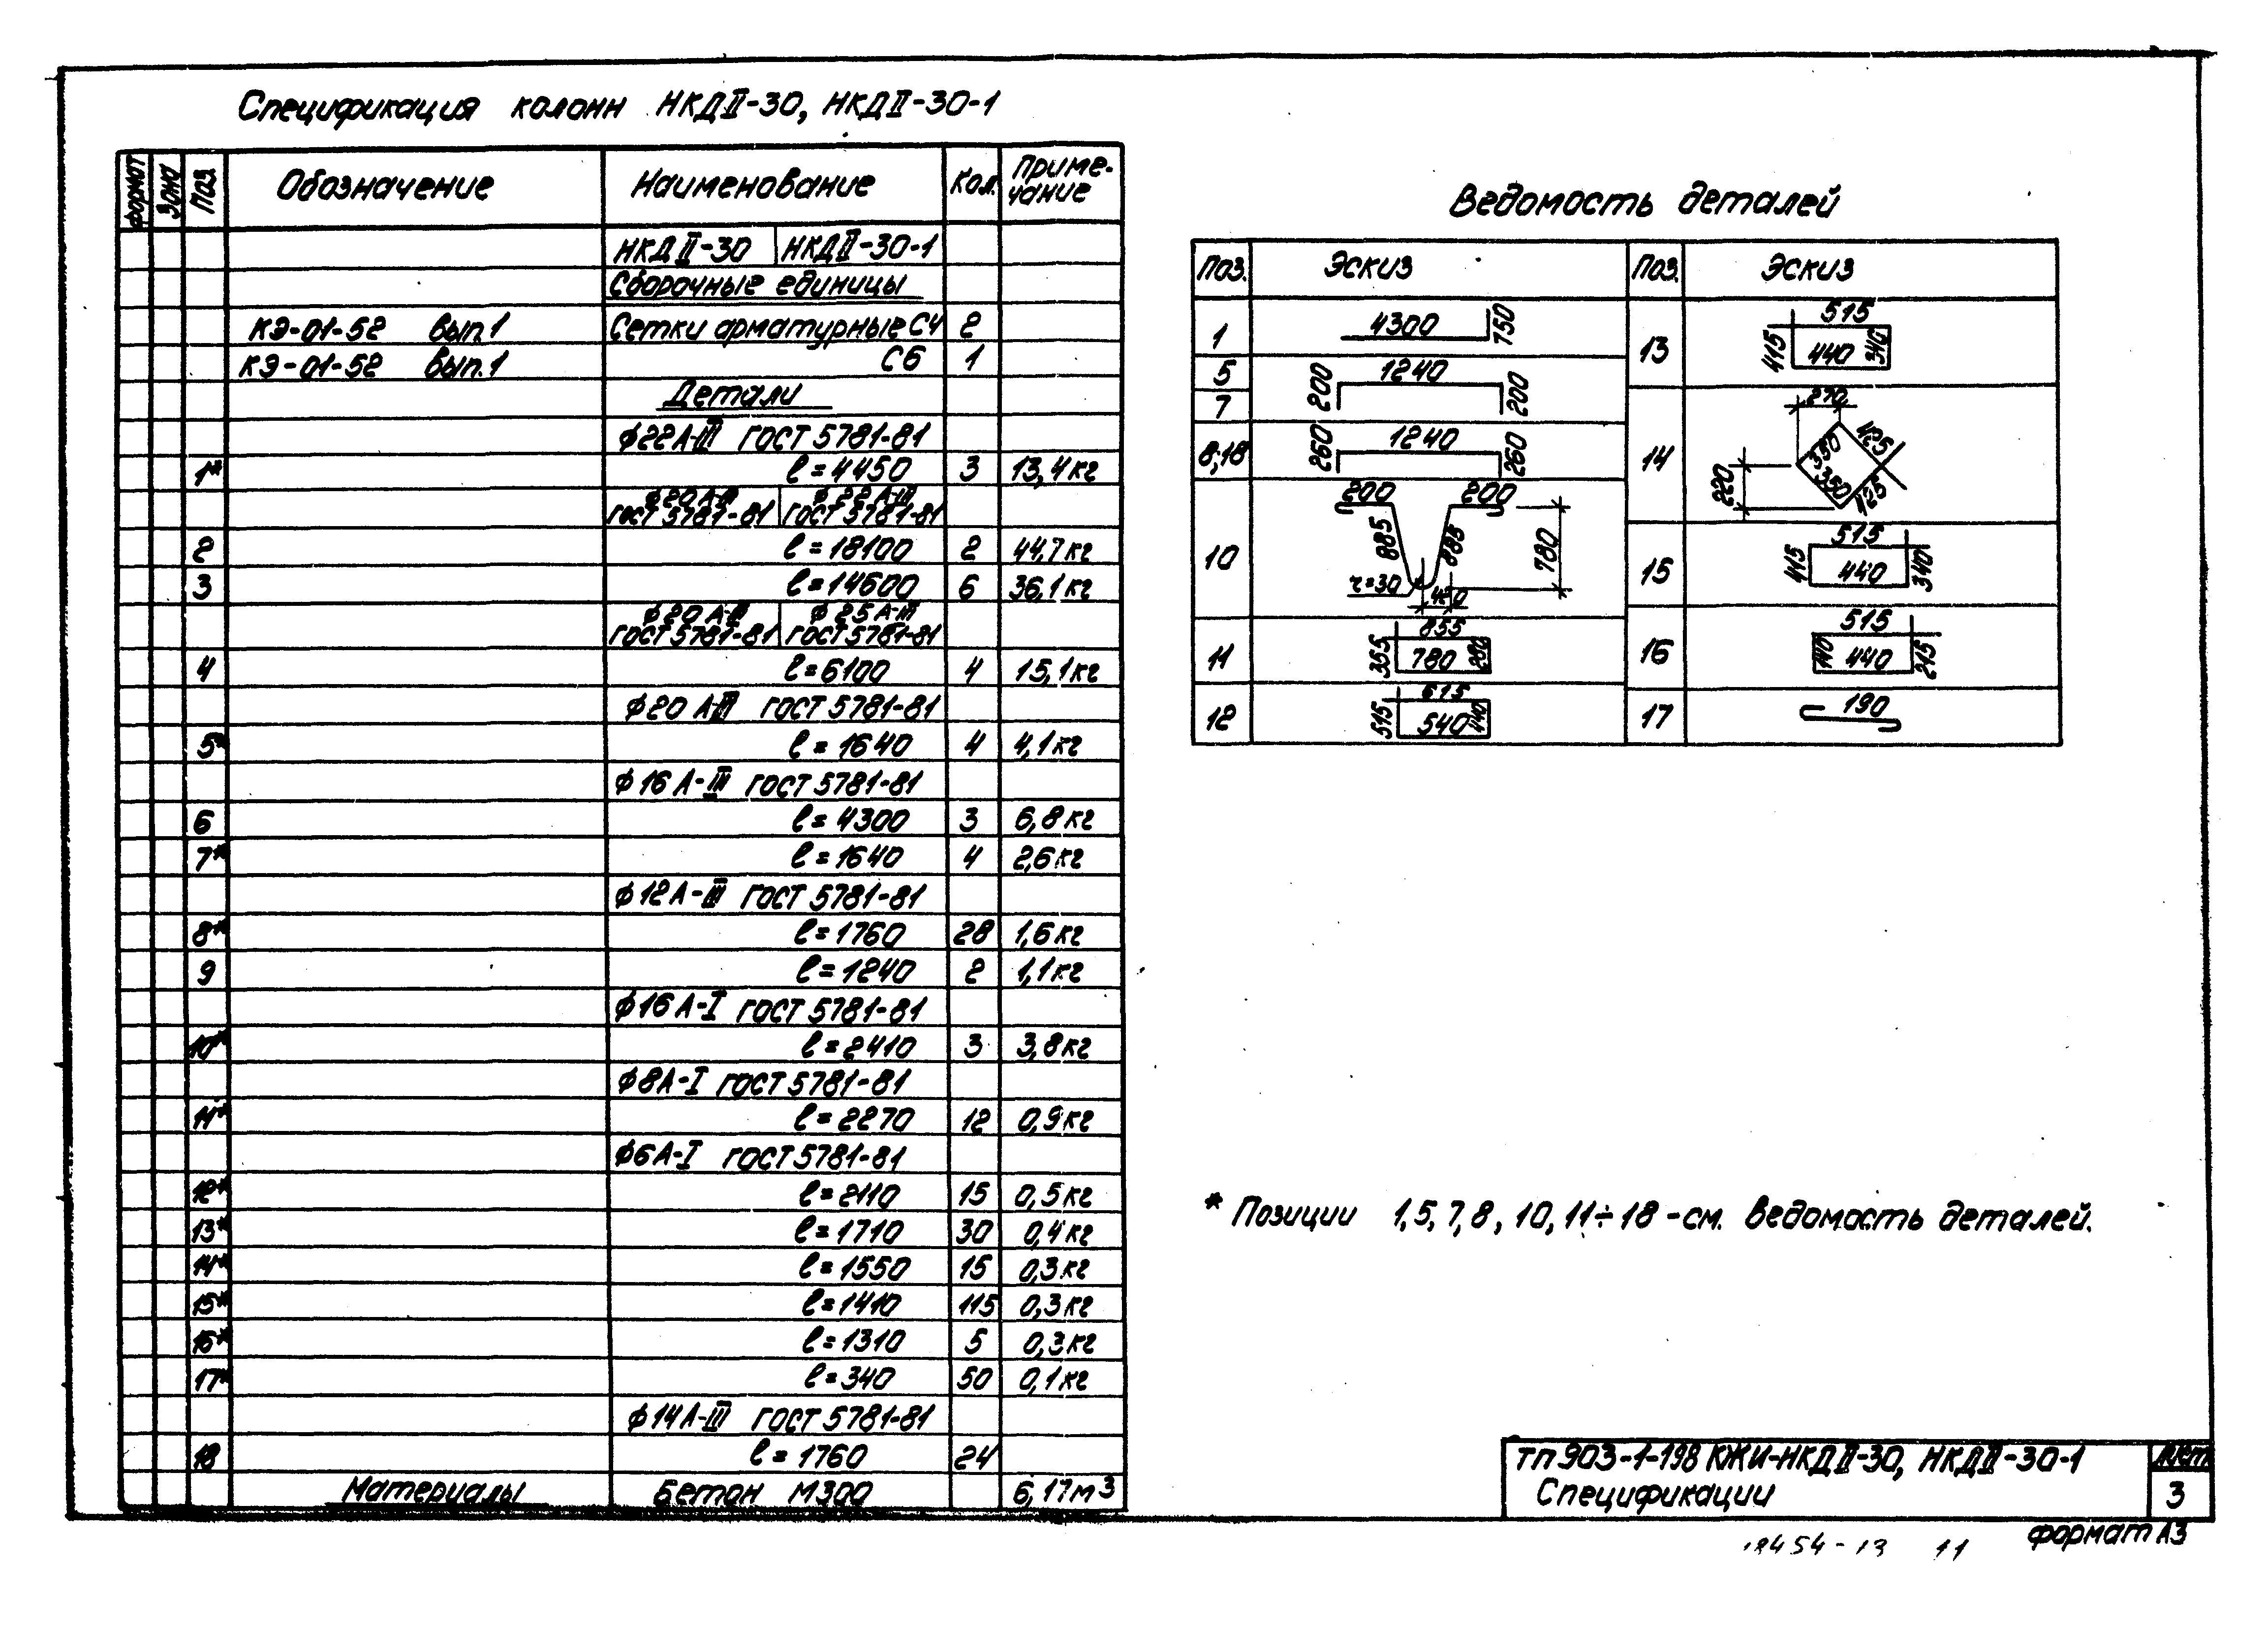 Спецификация колонн НКДII-30, НКДII-30-1
формат Зона Поз. Обозначение Наименование Кол. Приме-
чание
НКДII-30 НКДII-30-1
Сборочные единицы
КЭ-01-52 Вып.1 Сетки арматурные С4 2
КЭ-01-52 Вып.1 С6 1
Детали
φ22А-III ГОСТ 5781-81
1* ℓ=4450 3 13,4кг
φ20А-III φ22А-III
ГОСТ 5781-81 ГОСТ 5781-81
2 ℓ=18100 2 44,7кг
3 ℓ=14600 6 36,1кг
φ20А-III φ25А-III
ГОСТ 5781-81 ГОСТ 5781-81
4 ℓ=6100 4 15,1кг
φ20А-III ГОСТ 5781-81
5* ℓ=1640 4 4,1кг
φ16А-III ГОСТ 5781-81
6 ℓ=4300 3 6,8кг
7* ℓ=1640 4 2,6кг
φ12А-III ГОСТ 5781-81
8* ℓ=1760 28 1,6кг
9 ℓ=1240 2 1,1кг
φ16А-I ГОСТ 5781-81
10* ℓ=2410 3 3,8кг
φ8А-I ГОСТ 5781-81
11* ℓ=2270 12 0,9кг
φ6А-I ГОСТ 5781-81
12* ℓ=2110 15 0,5кг
13* ℓ=1710 30 0,4кг
14* ℓ=1550 15 0,3кг
15* ℓ=1410 115 0,3кг
16* ℓ=1310 5 0,3кг
17* ℓ=340 50 0,1кг
φ14А-III ГОСТ 5781-81
18 ℓ=1760 24
Материалы Бетон М300 6,17м³
Ведомость деталей
Поз. Эскиз Поз. Эскиз
1 4300 750
5 7 200 1240 200
8,18 260 1240 260
10 200 200 885 885 780 r=30
11 855 355 780 280
12 615 515 540 440
13 515 415 440 340
14 270 220 350 350 425 125
15 515 415 440 340
16 515 140 440 215
17 190
* Позиции 1,5,7,8,10,11÷18-см. ведомость деталей.
ТП 903-1-198 КЖИ-НКДII-30, НКДII-30-1
Спецификации
Лист
3
формат А3
11